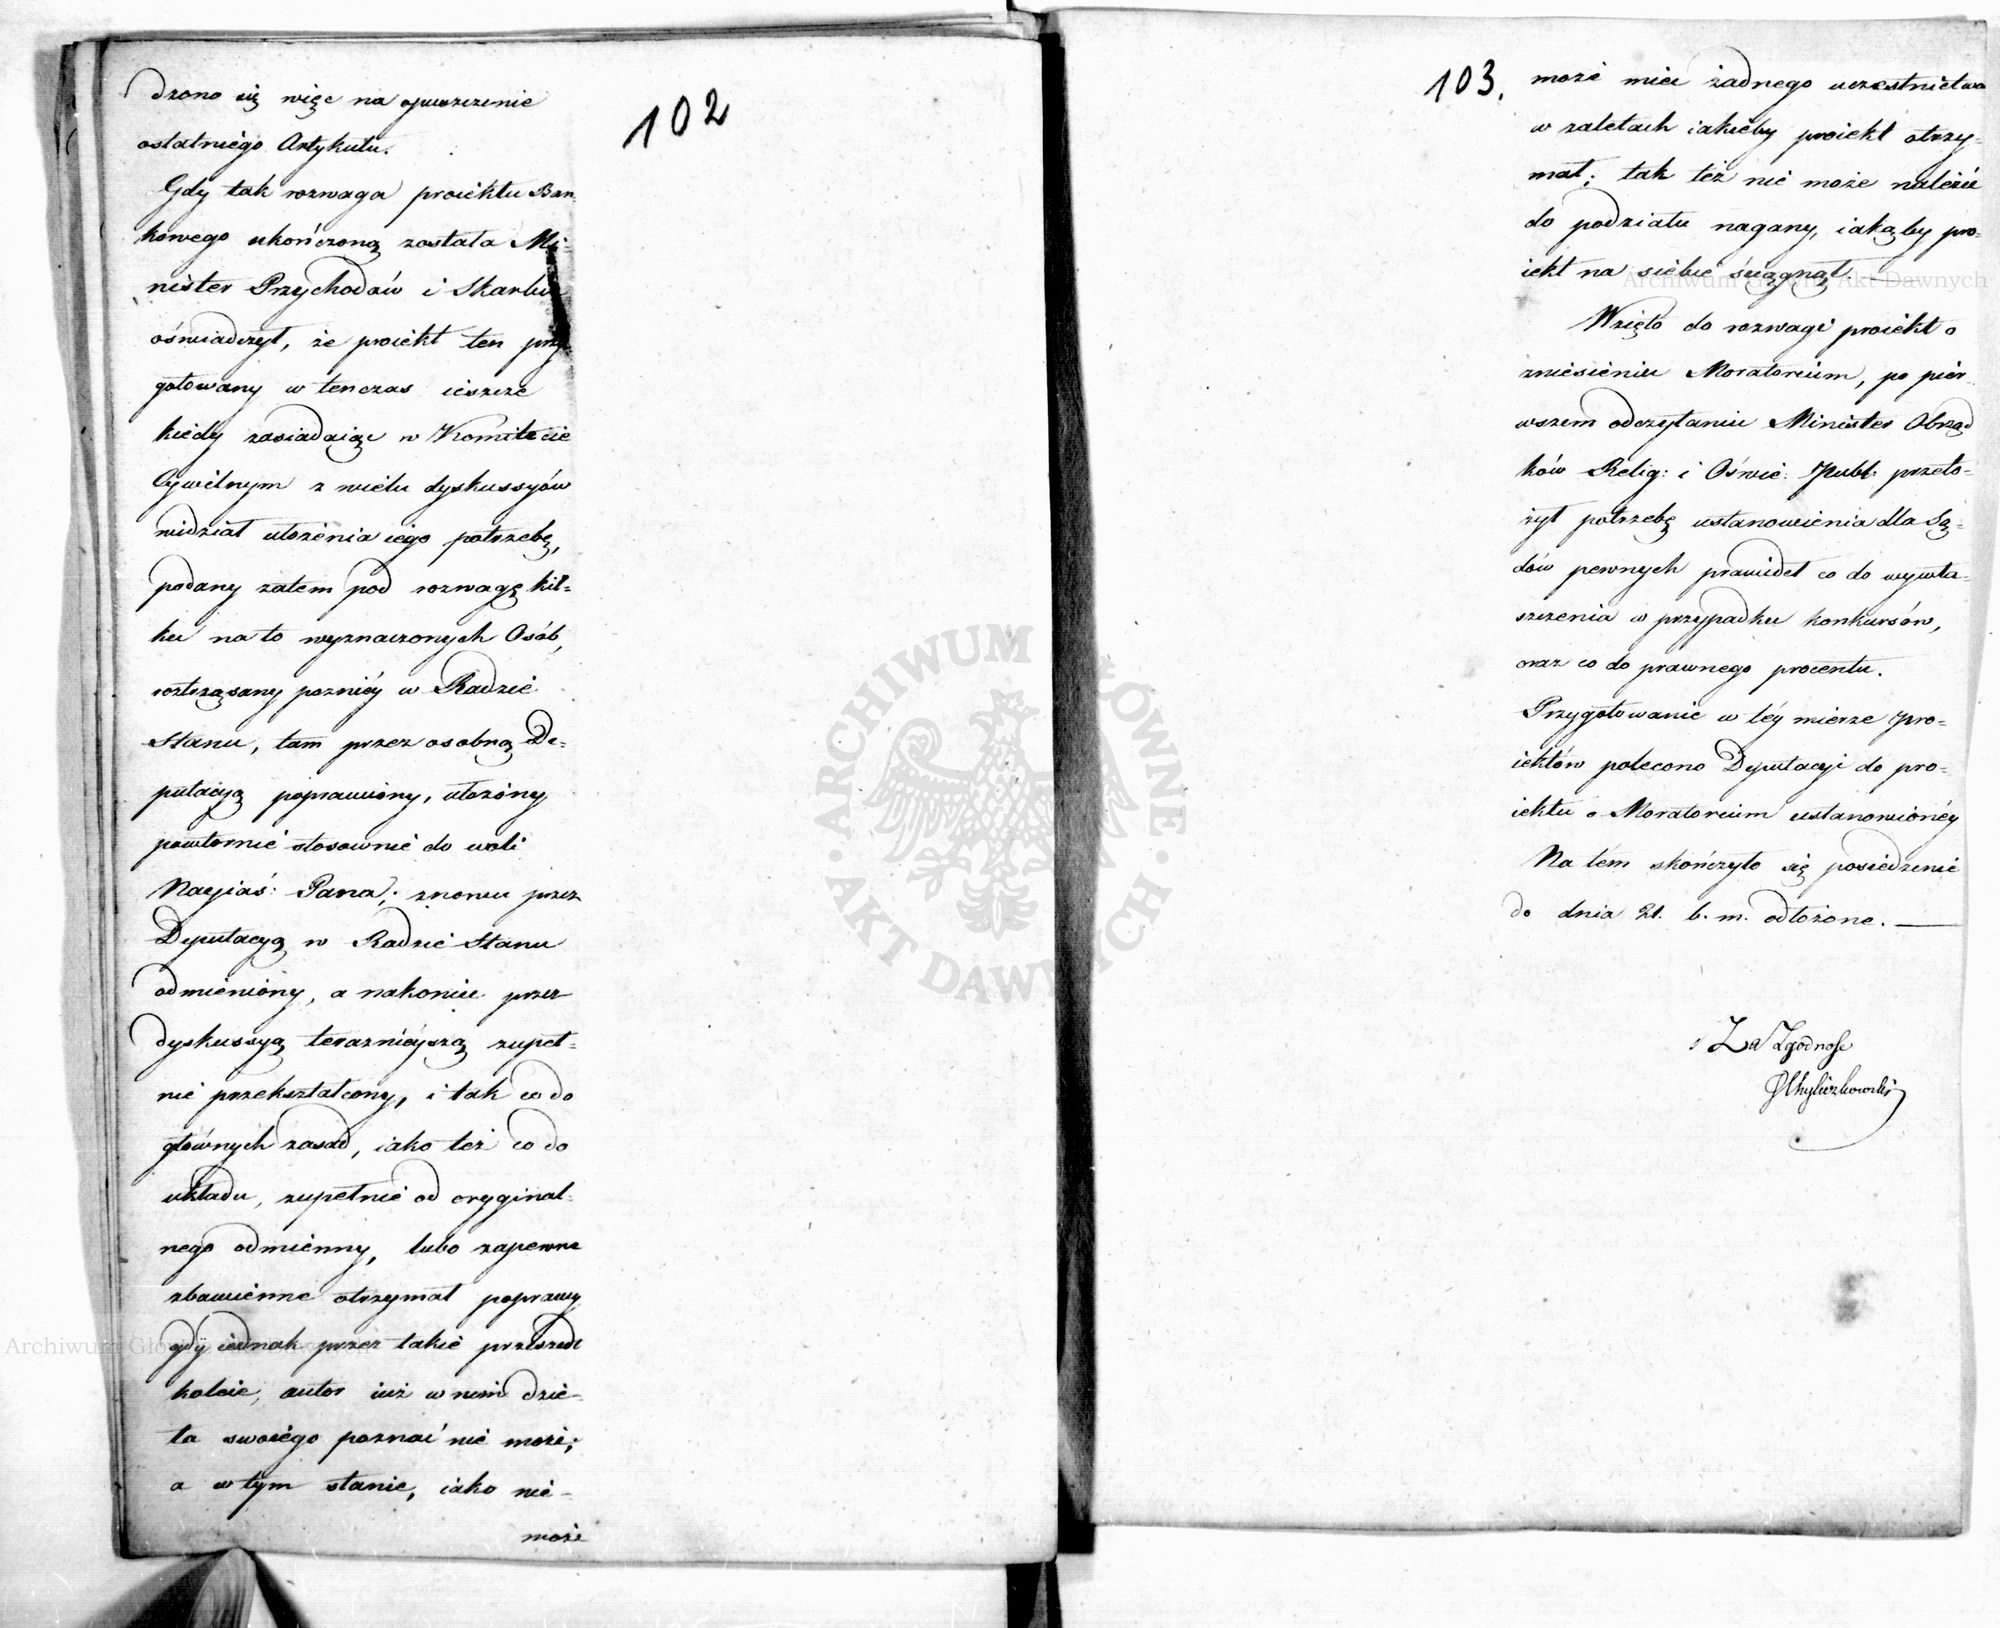 102
dzono się więc na opuszczenie
ostatniego Artykułu.
Gdy tak rozwaga proiektu Ban-
kowego ukończoną została Mi-
nister Przychodów i Skarbu
oświadczył, że proiekt ten przy-
gotowany w tenczas ieszcze
kiedy zasiadaiąc w Komitecie
Cywilnym z wielu dyskussyów
widział ułożenia iego potrzebę,
podany zatem pod rozwagę kil-
ku na to wyznaczonych Osób,
roztrząsany pozniéy w Radzie
Stanu, tam przez osobną De-
putacyą poprawiony, ułożony
powtornie stosownie do woli
Nayiaś: Pana; znowu przez
Deputacyą w Radzie Stanu
odmieniony, a nakoniec przez
dyskussyą teraznieyszą zupeł-
nie przekształcony, i tak co do
głównych zasad, iako też co do
układu, zupełnie od oryginal-
nego odmienny, lubo zapewne
zbawienne otrzymał poprawy
gdy iednak przez takie przeszedł
koleie, autor iuż w nim dzie-
ła swoiego poznać nie może;
a w tym stanie, iako nie-
może
103.
może mieć żadnego uczestnictwa
w zaletach iakieby proiekt otrzy-
mał; tak też nie może należeć
do podziału nagany, iakąby pro-
iekt na siebie ściągnął.
Wzięto do rozwagi proiekt o
zniesieniu Moratorium, po pier-
wszem odczytaniu Minister Obrząd
ków Relig: i Oświe: Publ: przeło-
żył potrzebę ustanowienia dla Są-
dów pewnych prawideł co do wywła-
szczenia w przypadku konkursów,
oraz co do prawnego procentu.
Przygotowanie w téy mierze pro-
iektów polecono Deputacyi do pro-
iektu o Moratorium ustanowionéy
Na tém skończyło się posiedzenie
do dnia 21. b. m. odłożone.
Za Zgodność
ARCHIWUM GŁÓWNE AKT DAWNYCH
Archiwum Główne Akt Dawnych
Archiwum Główne Akt Dawnych